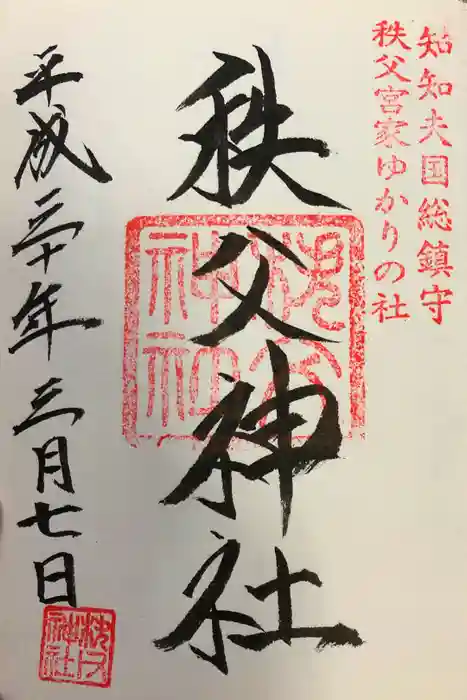 知知夫国総鎮守
秩父宮家ゆかりの社
秩父神社
秩父神社
平成三十年三月七日
秩父神社